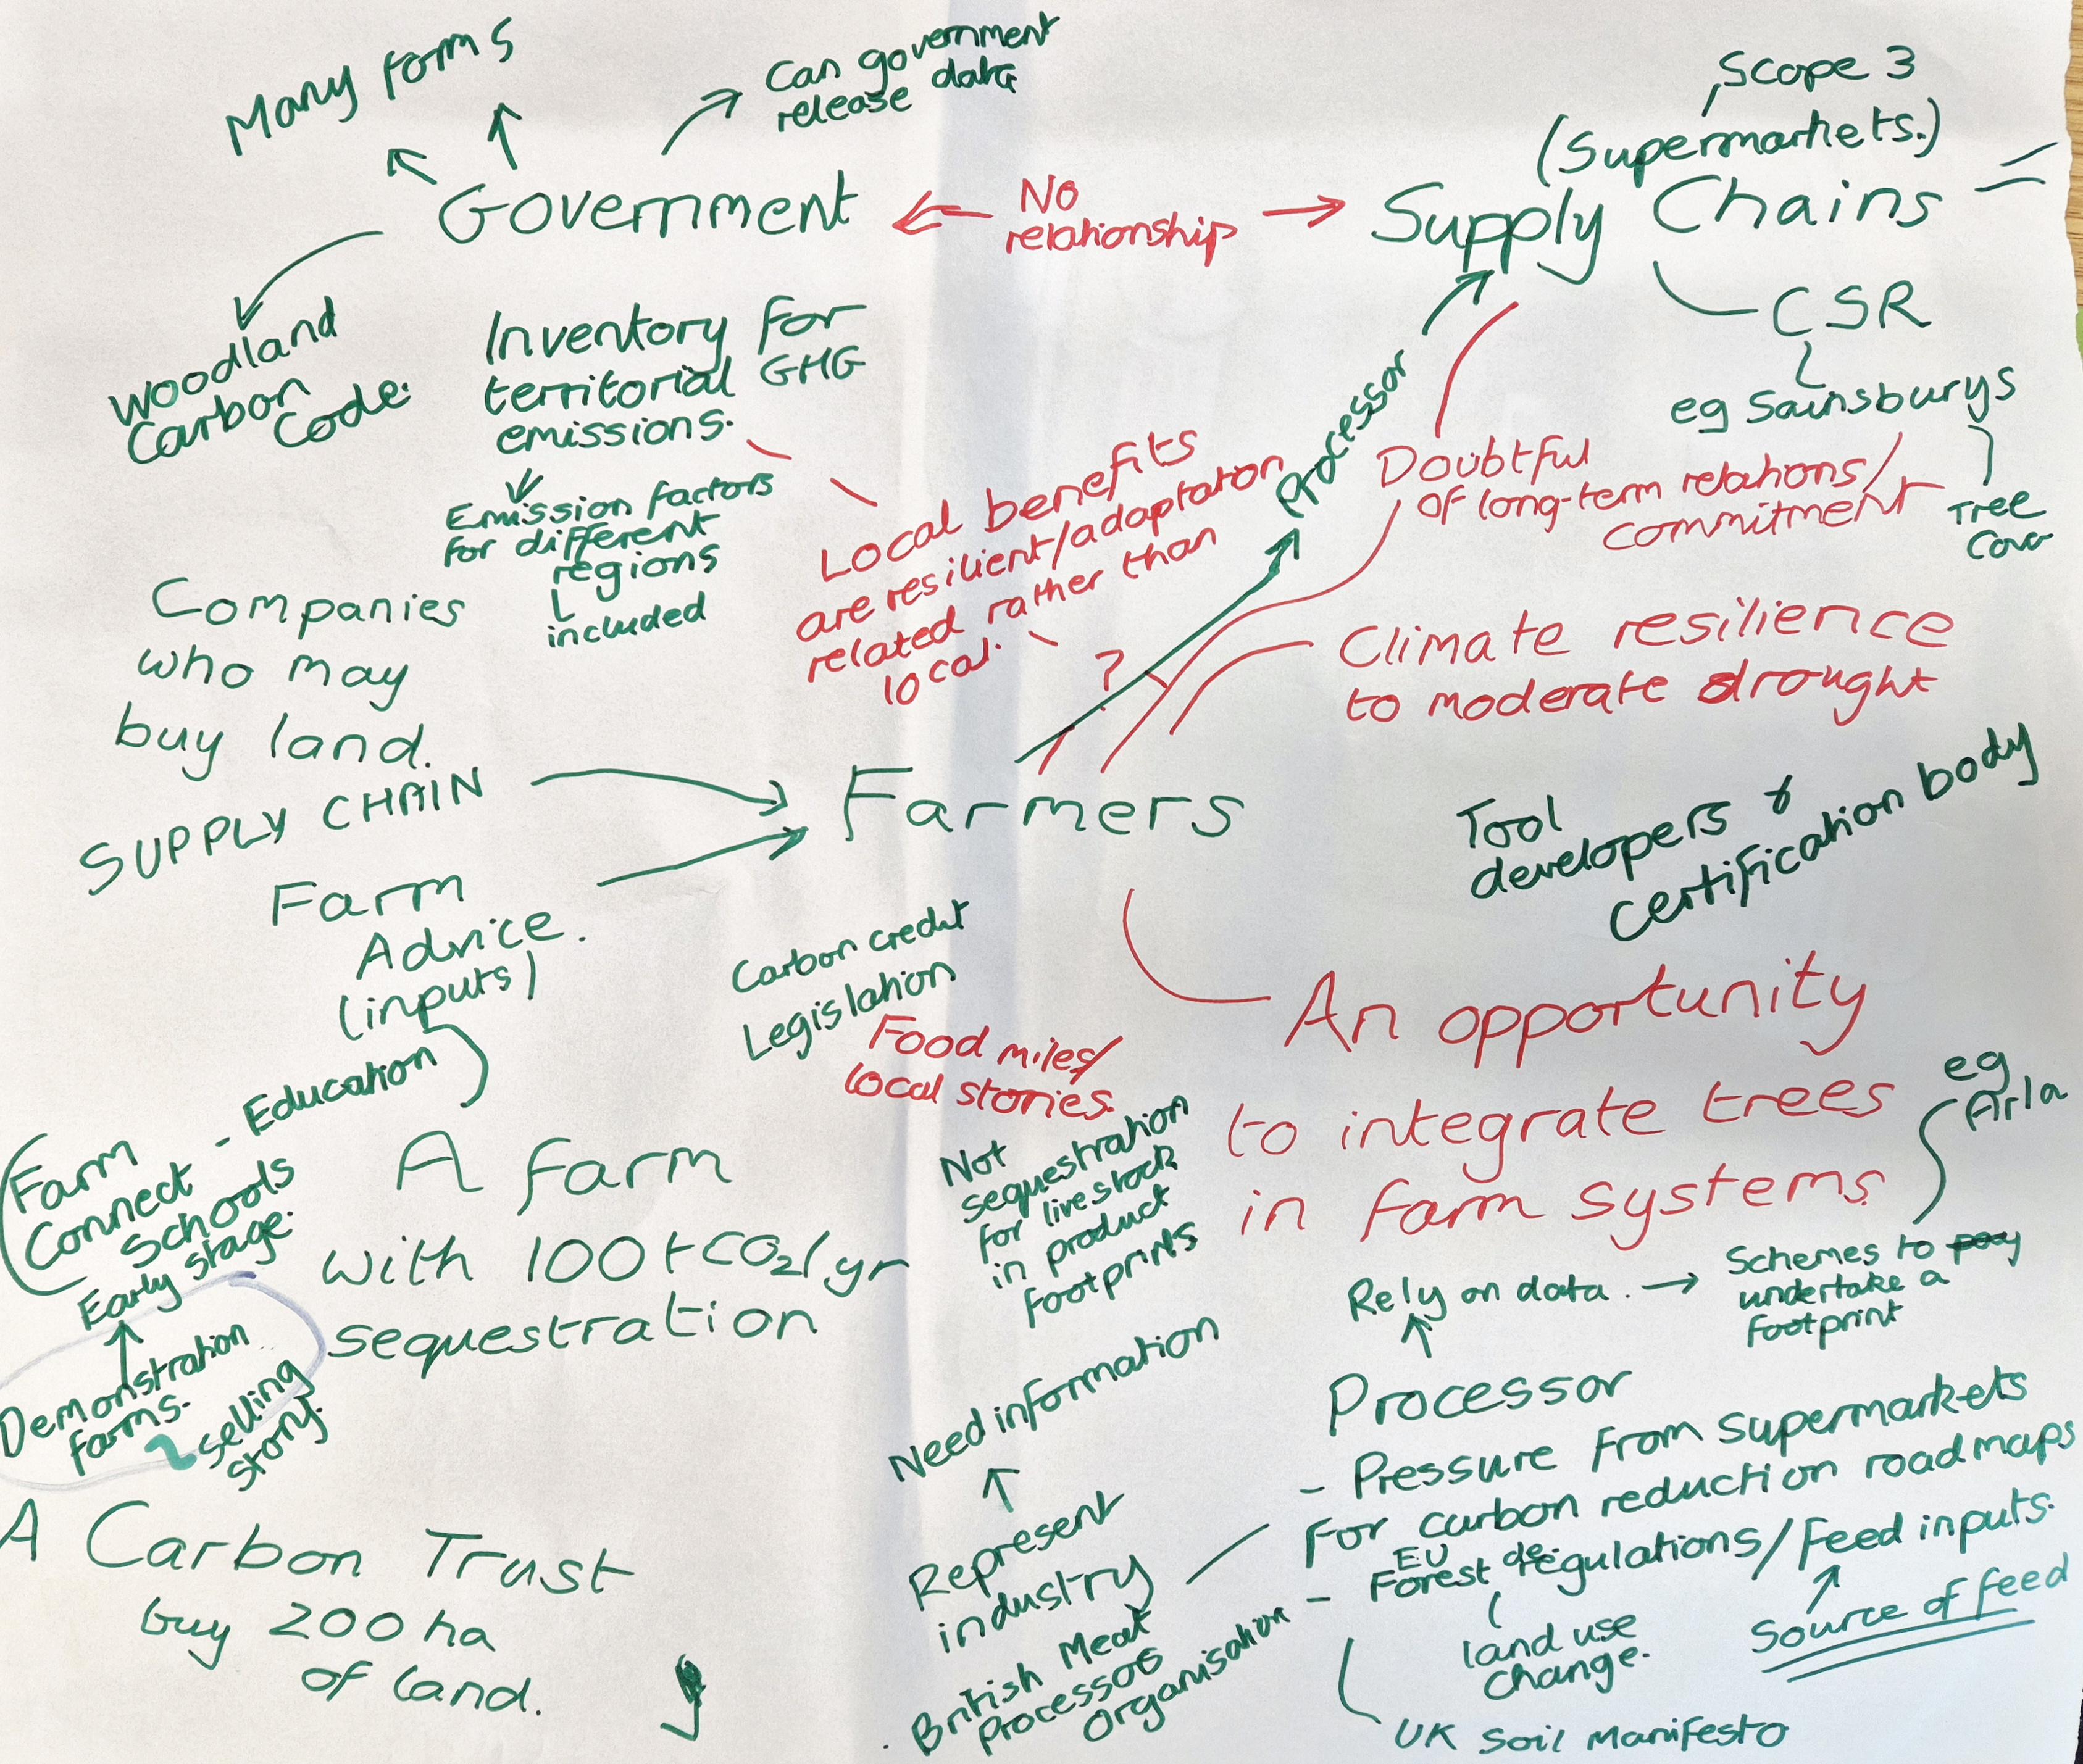 Many forms
Can government
release data
Scope 3
(Supermarkets.)
Government
No
relationship
Supply Chains
CSR
eg Sainsburys
Tree
Woodland
Carbon
Code.
Inventory for
territorial GHG
emissions.
Emission factors
for different
regions
included
Local benefits
are resilient/adaptation
related rather than
local.
?
Processor
Doubtful
of long-term relations/
commitment
Climate resilience
to moderate drought
Companies
who may
buy land.
SUPPLY CHAIN
Farmers
Farm
Advice.
(inputs)
Education
Tool
developers &
certification body
Carbon credit
Legislation
Food miles/
local stories.
An opportunity
to integrate trees
in farm systems
eg
Arla
Farm
Connect -
Schools
Early stage.
Demonstration
farms.
selling
story.
A farm
with 100 t CO2/yr
sequestration
Not
sequestration
for livestock
in product
footprints
Rely on data.
Schemes to
undertake a
footprint
Need information
Represent
industry
British Meat
Processos
Organisation
Processor
- Pressure from supermarkets
for carbon reduction roadmaps
- EU
Forest de-regulations/Feed inputs.
land use
change.
Source of feed
UK Soil Manifesto
A Carbon Trust
buy 200 ha
of land.